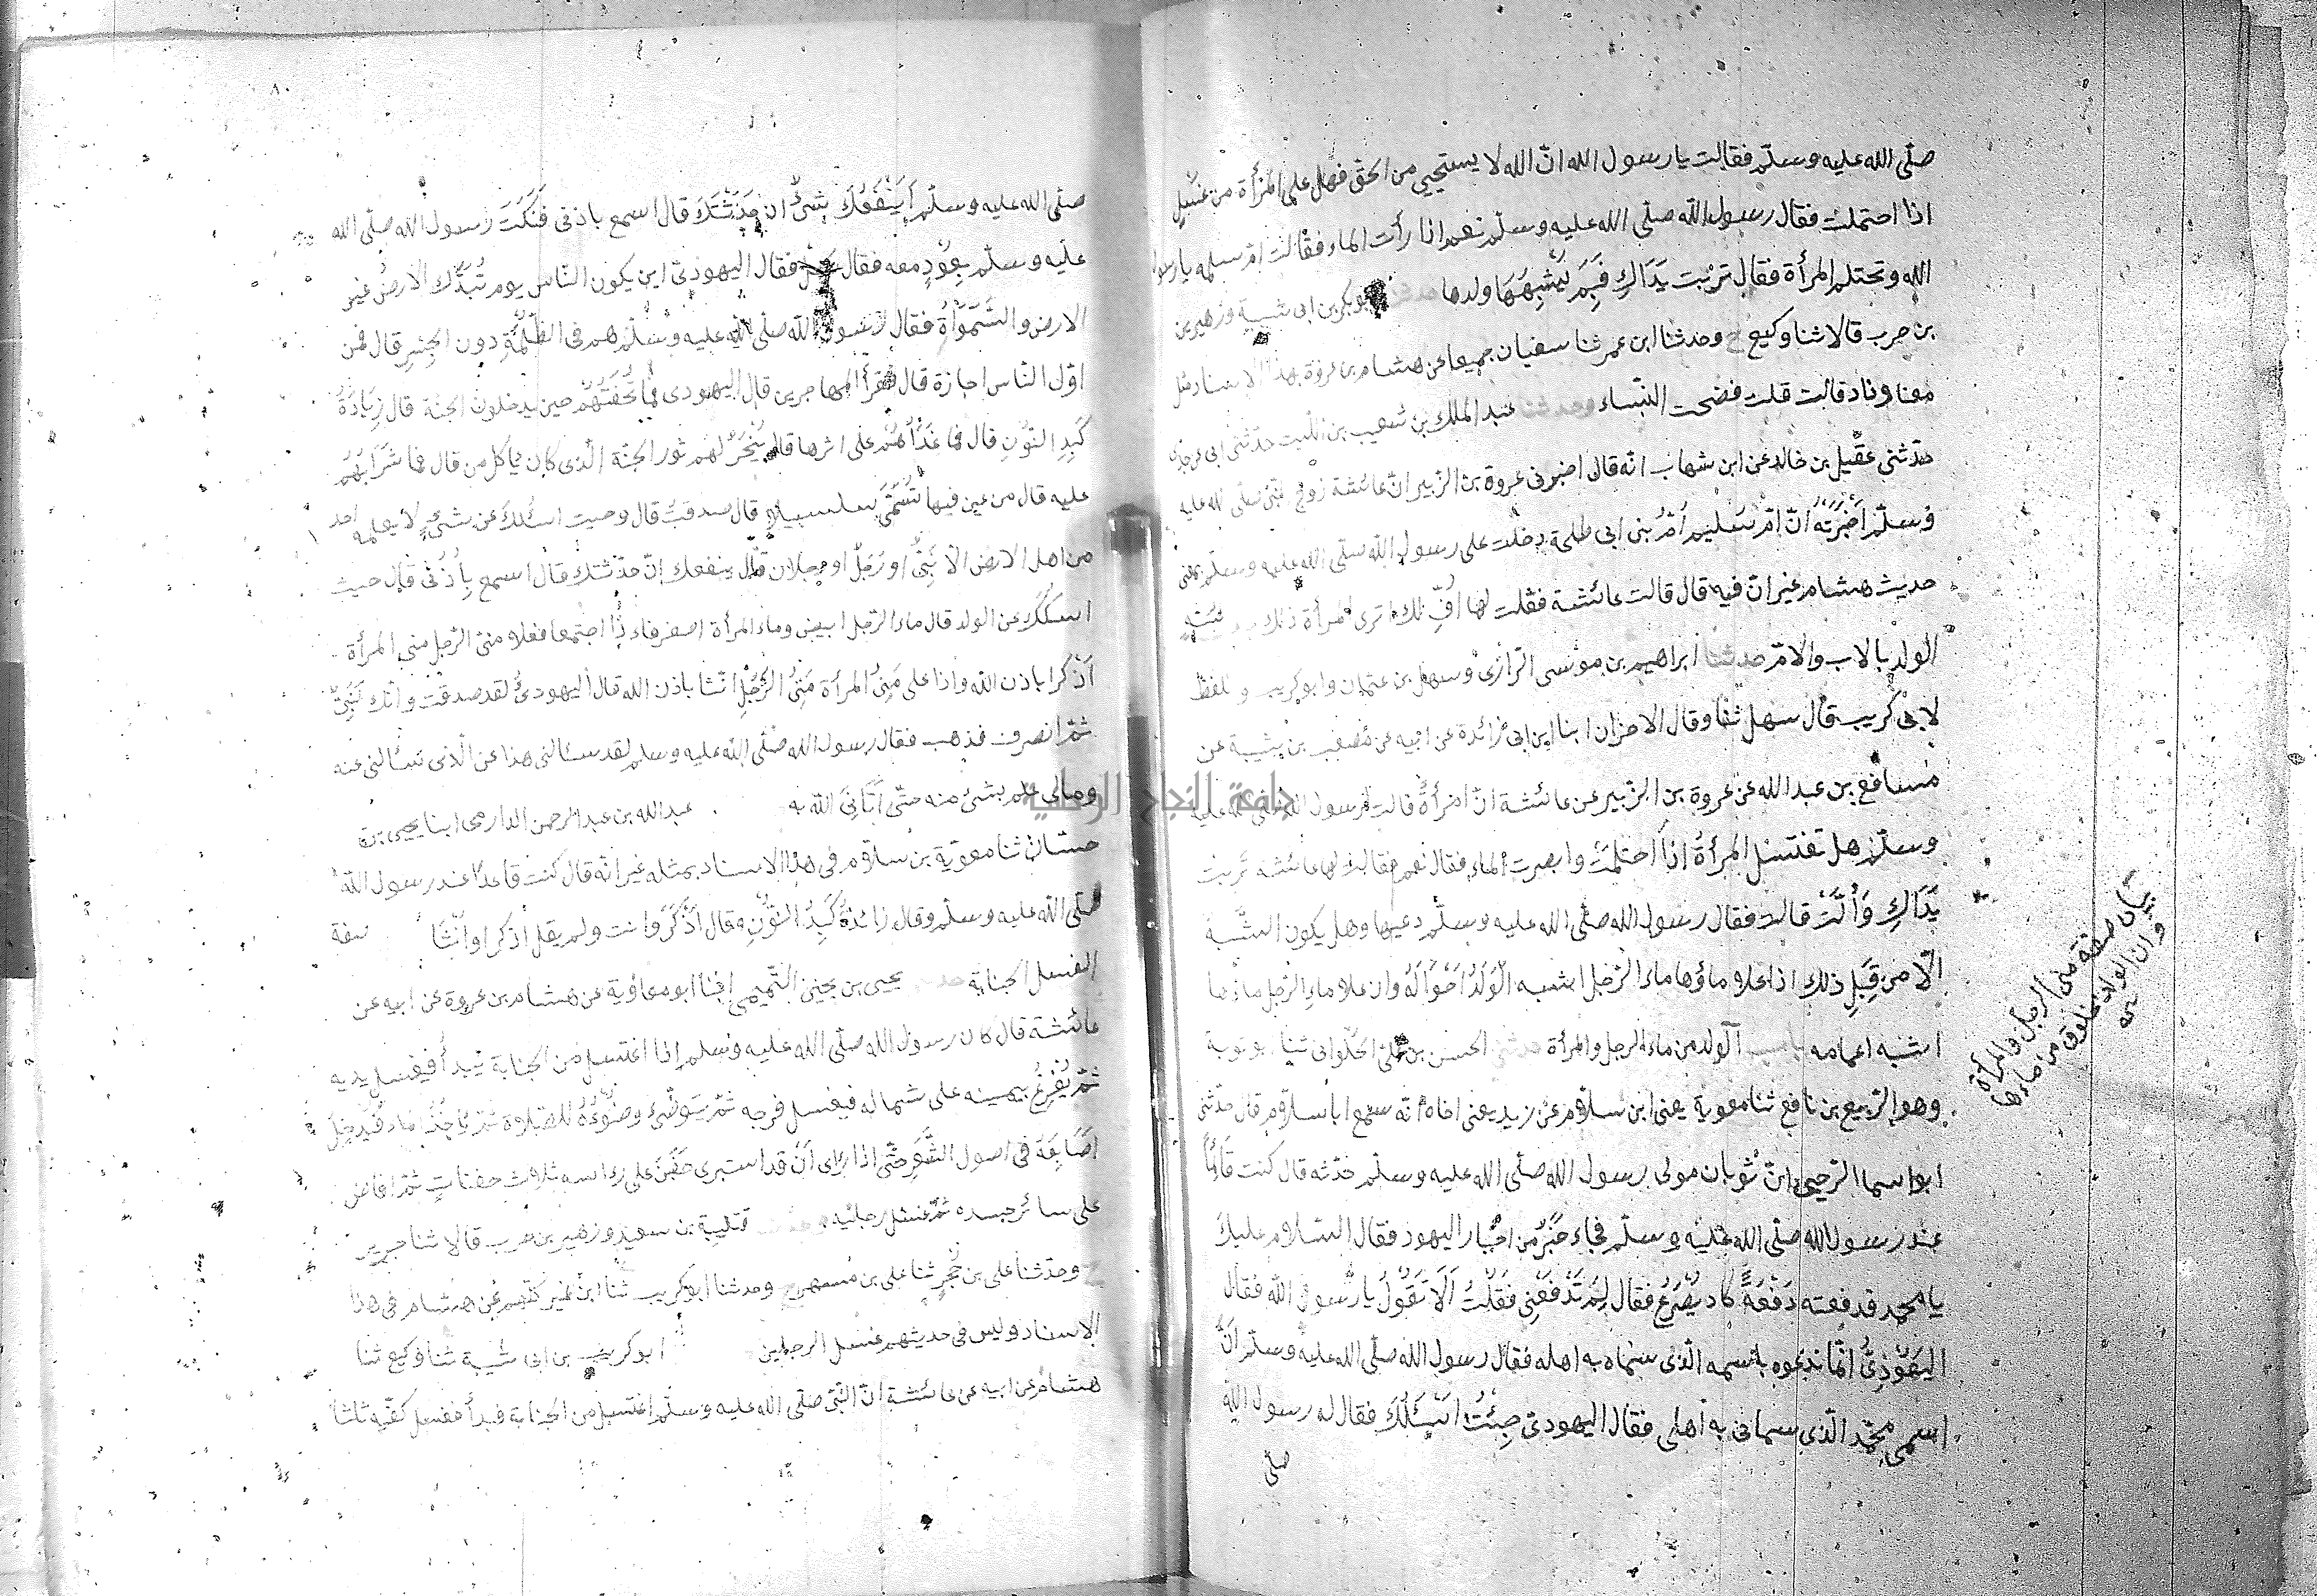 صلى الله عليه وسلم فقالت يا رسول الله ان الله لا يستحيي من الحق فهل على المرأة من غسل
اذا احتملت فقال رسول الله صلى الله عليه وسلم نعم اذا رأت الماء فقالت ام سلمه يا رسول
الله وتحتلم المرأة فقال تربت يَدَاكِ فَبِمَ يُشْبِهُهَا ولدها حدثنا ابو بكر بن ابى شيبة وزهير بن
بن حرب قالا ثنا وكيع ح وحدثنا ابن عمر ثنا سفيان جميعا عن هشام بن عروة بهذا الاسناد مثل
معنا وزاد قالت قلت فضحت النساء وحدثنا عبد الملك بن شعيب بن الليث حدثنى ابى عن جدى
حدثنى عقيل بن خالد عن ابن شهاب انه قال اخبرنى عروة بن الزبير ان عائشة زوج النبى صلى الله عليه
وسلم اخبرته ان ام سليم ام بنى ابى طلحة دخلت على رسول الله صلى الله عليه وسلم بمعنى
حديث هشام غير ان فيه قال قالت عائشة فقلت لها افٍّ لك اترى المرأة ذلك
الولد بالاب والام حدثنا ابراهيم بن موسى الرازى وسهل بن عثمان وابو كريب واللفظ
لابى كريب قال سهل ثنا وقال الاخران ابنا ابن ابى زائدة عن ابيه عن مصعب بن شيبة عن
مسافع بن عبد الله عن عروة بن الزبير عن عائشة ان امرأةً قالت لرسول الله صلى الله عليه
وسلم هل تغتسل المرأة اذا احتلمت وابصرت الماء فقال نعم فقالت لها عائشة تربت
يَدَاكِ وَأُلَّتْ قالت فقال رسول الله صلى الله عليه وسلم دعيها وهل يكون الشَّبَهُ
الا من قِبَلِ ذلك اذا علا ماؤها ماء الرجل اشبه الْوَلَدُ اَخْوَالَهُ وان علا ماء الرجل ماءها
اشبه اعمامه باب الولد من ماء الرجل والمرأة حدثنى الحسن بن على الحلوانى ثنا ابو توبة
وهو الربيع بن نافع ثنا معوية يعنى ابن سلام عن زيد يعنى اخاه انه سمع ابا سلام قال حدثنى
ابو اسما الرحبى ان ثوبان مولى رسول الله صلى الله عليه وسلم حدثه قال كنت قائما
عند رسول الله صلى الله عليه وسلم فجاء حَبْرٌ من احبار اليهود فقال السلام عليك
يا محمد فدفعته دَفْعَةً كاد يُصْرَعُ فقال لِمَ تَدْفَعْنِى فَقُلْتُ اَلَا تَقُولُ يا رسول الله فقال
اليَهُودِىُّ انما ندعوه باسمه الذى سماه به اهله فقال رسول الله صلى الله عليه وسلم اَنَّ
اسمى محمد الذى سمانى به اهلى فقال اليهودى جِئْتُ اسئلك فقال له رسول الله
صلى
بيان صفة منى الرجل والمرأة
وان الولد مخلوق من ماءها
٨٠
صلى الله عليه وسلم أَيَنْفَعُكَ بشئٌ ان حَدَّثْتُكَ قال اسمع باذنى فَنَكَتَ رسول الله صلى الله
عليه وسلم بِعُوْدٍ معه فقال فقال اليهودى اين يكون الناس يوم تُبَدَّلُ الارضُ غير
الارض والسَّمَوٰاة فقال رسول الله صلى الله عليه وسلم هم فى الظُّلْمَةِ دون الجِسْرِ قال فمن
اول الناس اجازة قال فقرأ المهاجرين قال اليهودى فما تُحْفَتُهُمْ حين يدخلون الجنة قال زِيَادَةُ
كَبِدِ النُّوْنِ قال فما غَدَاُهُمْ على اثرها قال يُنْحَرُ لهم ثور الجنة الذى كان ياكل من قال فما شَرَابُهُمْ
عليه قال من عين فيها تُسَمَّى سلسبيلا قال صدقت قال وجيت اسئلك عن شئ لا يعلمه احد
من اهل الارض الا نَبِىٌّ او رَجُلٌ او رجلان قال ينفعك ان حدثتك قال اسمع باُذُنى قال جيت
اسئلك عن الولد قال ماء الرجل ابيض وماء المرأة اصفر فاذا اجتمعا فعلا منى الرجل منى المرأة
اَذْكَرا باذن الله واذا على مَنِىُّ المرأة مَنِىُّ الرَّجُلِ انثا باذن الله قال اليهودى لقد صدقت وانك لَنَبِىٌّ
ثم انصرف فذهب فقال رسول الله صلى الله عليه وسلم لقد سئالنى هذا عن الذى سئالنى عنه
ومالى علم بشئ منه حتى اَتَانِىَ الله به عبد الله بن عبد الرحمن الدارمى ابنا يحيى بن
حسّان ثنا معوية بن سلام فى هذا الاسناد بمثله غير انه قال كنت قاعدًا عند رسول الله
صلى الله عليه وسلم وقال زائدةُ كَبِدِ النُّوْنِ وقال اَذْكَرَ وانث ولم يقل اذكرا وانثا صفة
الغسل الجنابة حدثنا يحيى بن يحيى التميمى ابنا ابو معاوية عن هشام بن عروة عن ابيه عن
عائشة قال كان رسول الله صلى الله عليه وسلم اذا اغتسل من الجنابة يبدأ فيغسل يديه
ثم يُفْرِغُ بيمينه على شماله فيغسل فرجه ثم يتوضئ وضُوْءَهُ للصلاة ثم ياخذ الماء فَيُدْخِلُ
اَصَابِعَهُ فى اصول الشَّعَرِ حتى اذا رأى اَنْ قد استبرى حَفَنَ على راسه ثلاث حفناتٍ ثم افاض
على سائر جسده ثم غسل رجليه وحدثنا قتيبة بن سعيد وزهير بن حرب قالا ثنا جرير
ح وحدثنا على بن حُجْرٍ ثنا على بن مُسهر ح وحدثنا ابو كريب ثنا ابن نمير كلهم عن هشام فى هذا
الاسناد وليس فى حديثهم غسل الرجلين ابو كريب بن ابى شيبة ثنا وكيع ثنا
هشام عن ابيه عن عائشة ان النبى صلى الله عليه وسلم اغتسل من الجنابة فبدأ فغسل كفيه ثلثا
جامعة النجاح الوطنية